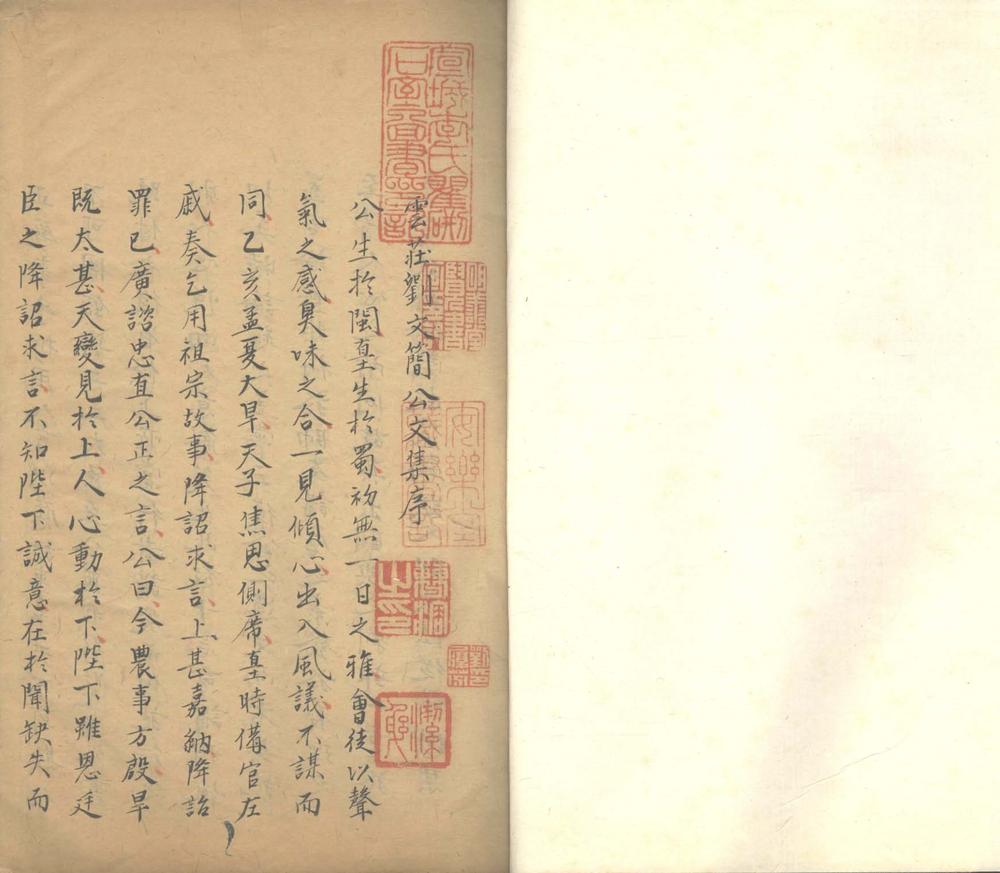 雲莊劉文簡公文集序
公生於閩垕生於蜀初無一日之雅會徒以聲
氣之感臭味之合一見傾心出入風議不謀而
同乙亥孟夏大旱天子焦思側席垕時備官左
戚奏乞用祖宗故事降詔求言上甚嘉納降詔
罪已廣諮忠直公正之言公曰今農事方殷旱
既太甚天變見於上人心動於下陛下雖恩廷
臣之降詔求言不知陛下誠意在於聞缺失而
宣城李氏瞿硎
石室圖書印記